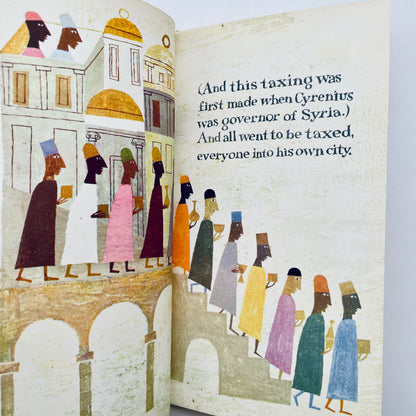 (And this taxing was
first made when Cyrenius
was governor of Syria.)
And all went to be taxed,
everyone into his own city.